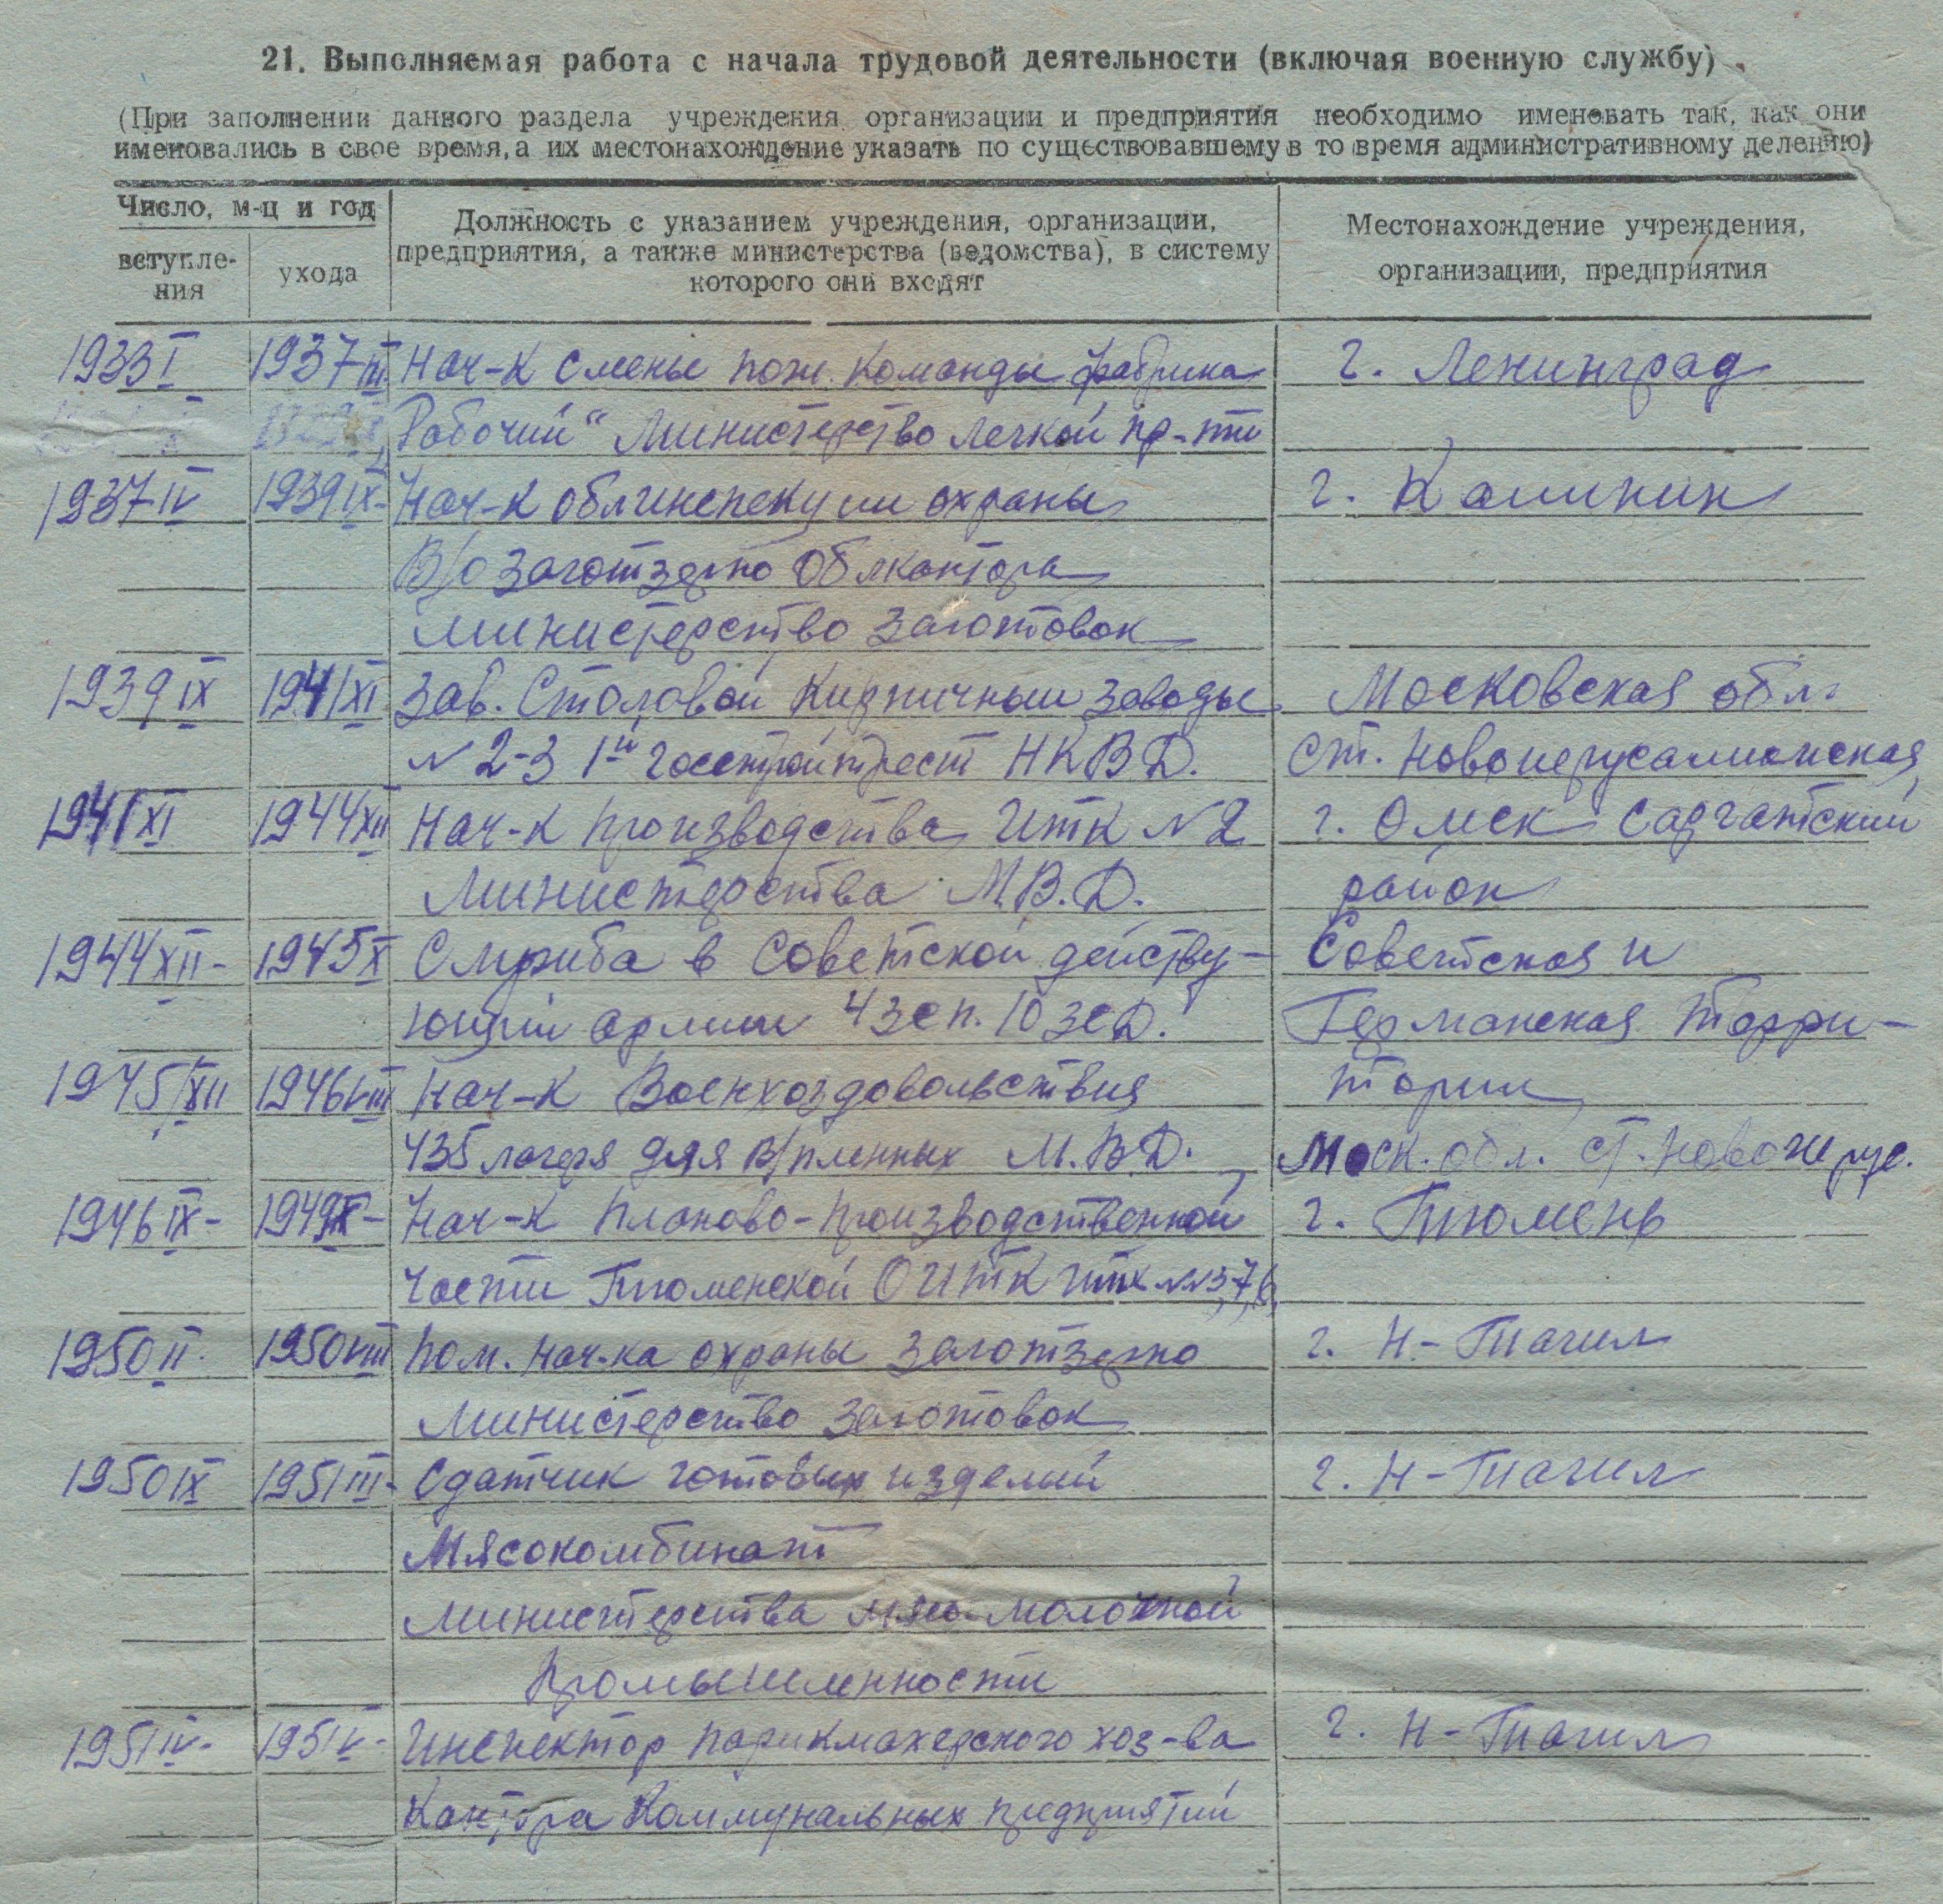 21. Выполняемая работа с начала трудовой деятельности (включая военную службу)
(При заполнении данного раздела учреждения организации и предприятия необходимо именовать так, как они
именовались в свое время, а их местонахождение указать по существовавшему в то время административному делению)
Число, м-ц и год
вступле-
ния
ухода
Должность с указанием учреждения, организации,
предприятия, а также министерства (ведомства), в систему
которого они входят
Местонахождение учреждения,
организации, предприятия
1933 I 1937 III Нач-к смены пож. команды фабрика г. Ленинград
Рабочий" Министерство легкой пр-ти
1937 IV 1939 IX Нач-к облинспекции охраны г. Калинин
В/о Заготзерно Облконтора
Министерство заготовок
1939 IX 1941 XI Зав. Столовой Кирпичный заводы Московская обл.
N 2-3 1й госстройтрест НКВД. ст. Новоиерусалимская
1941 XI 1944 XII Нач-к производства ИТК N 2 г. Омск Саргатский
Министерства М.В.Д. район
1944 XII- 1945 X Служба в Советской действу- Советская и
ющий армии 43сп. 10 зсд. Германская Терри-
1945 XII 1946 VIII Нач-к Военхоздовольствия тории
435 лагеря для в/пленных М.В.Д. Моск. обл. ст. Новоиерус.
1946 IX- 1949 IX- Нач-к Планово-производственной г. Тюмень
части Тюменской ОИТК ИТК NN 3,7,6,
1950 II. 1950 VIII Пом. нач-ка охраны Заготзерно г. Н-Тагил
Министерство заготовок
1950 IX 1951 III- Сдатчик готовых изделий г. Н-Тагил
Мясокомбинат
Министерства мясо-молочной
промышленности
1951 IV- 1951 V- Инспектор парикмахерского хоз-ва г. Н-Тагил
Контора Коммунальных предприятий